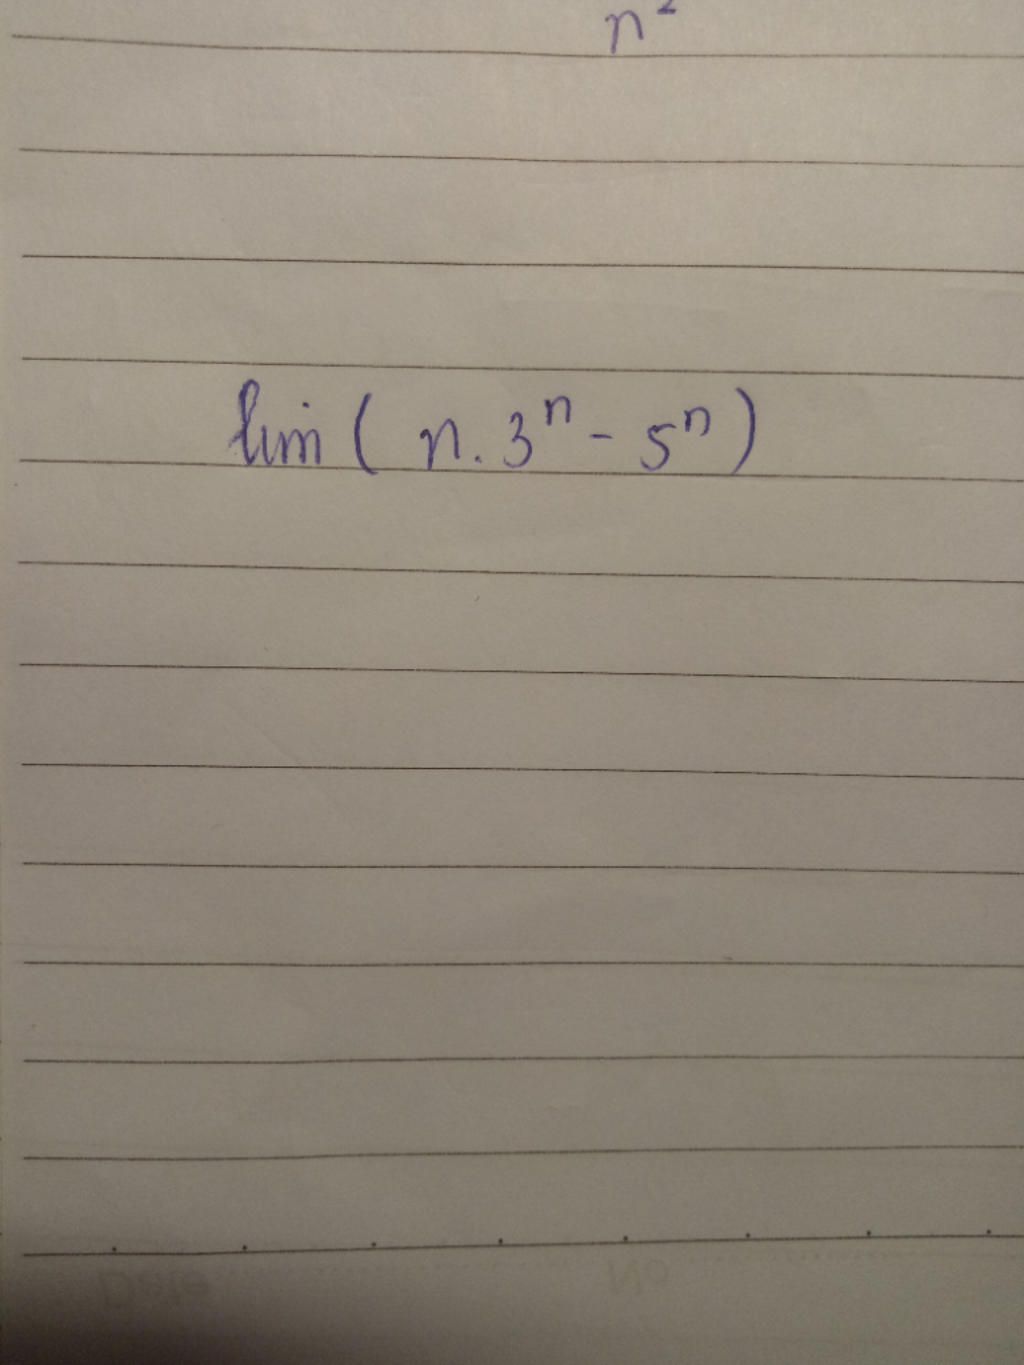 n²
lim ( n. 3ⁿ - 5ⁿ )